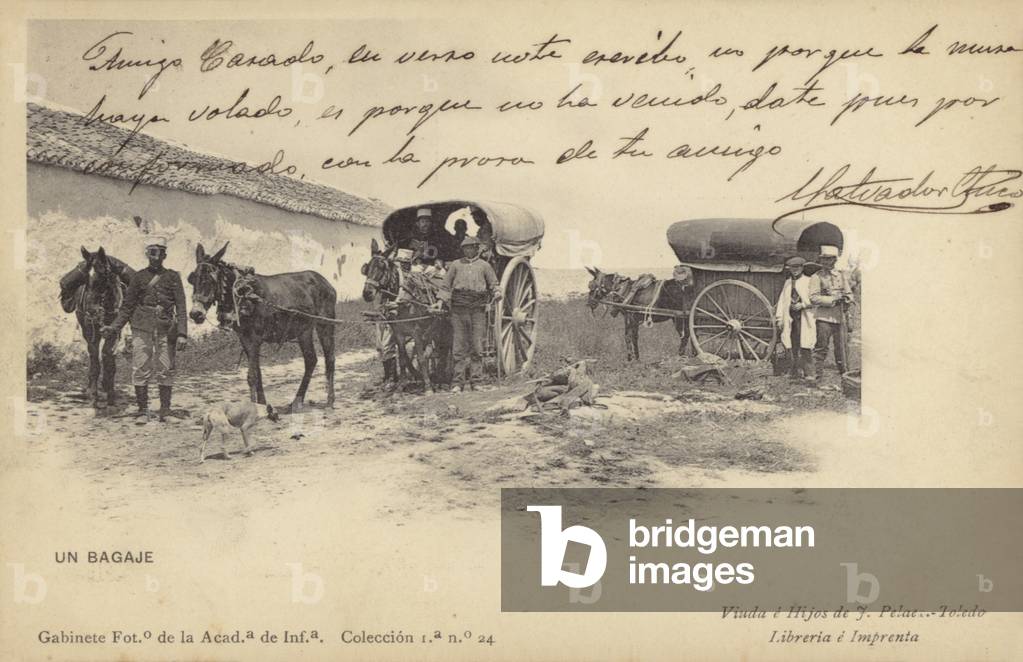 Amigo Casado, en verso note escribo, no porque la musa
haya volado, es porque no ha venido, date pues por
conformado, con la prosa de tu amigo
Salvador
bridgeman
images
UN BAGAJE
Viuda é Hijos de J. Pelaez-Toledo
Gabinete Fot.º de la Acad.ª de Inf.ª. Colección 1.ª n.º 24
Libreria é Imprenta